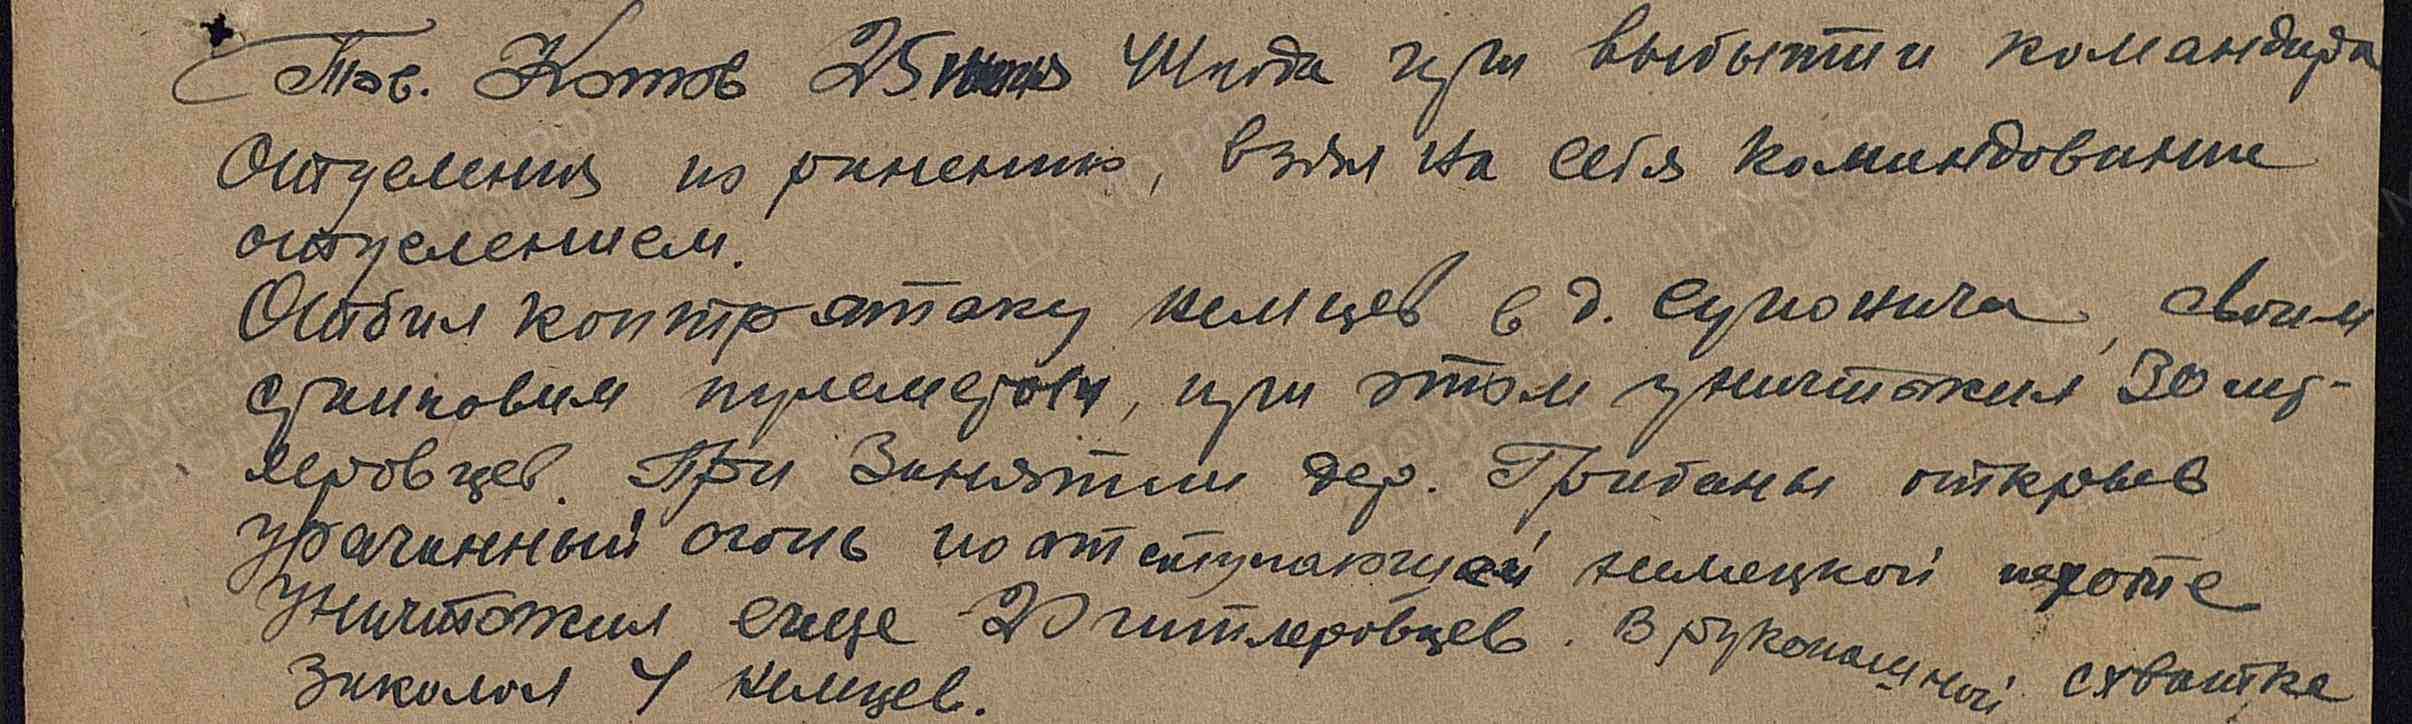 Тов. Котов 25 июня 44 года при выбытии командира
отделения по ранению, взял на себя командование
отделением.
Отбил контратаку немцев в д. Супонича, своим
станковым пулеметом, при этом уничтожил 30 гит-
леровцев. При занятии дер. Грибаны открыв
ураганный огонь по отступающей немецкой пехоте
уничтожил еще 20 гитлеровцев. В рукопашной схватке
заколол 4 немцев.